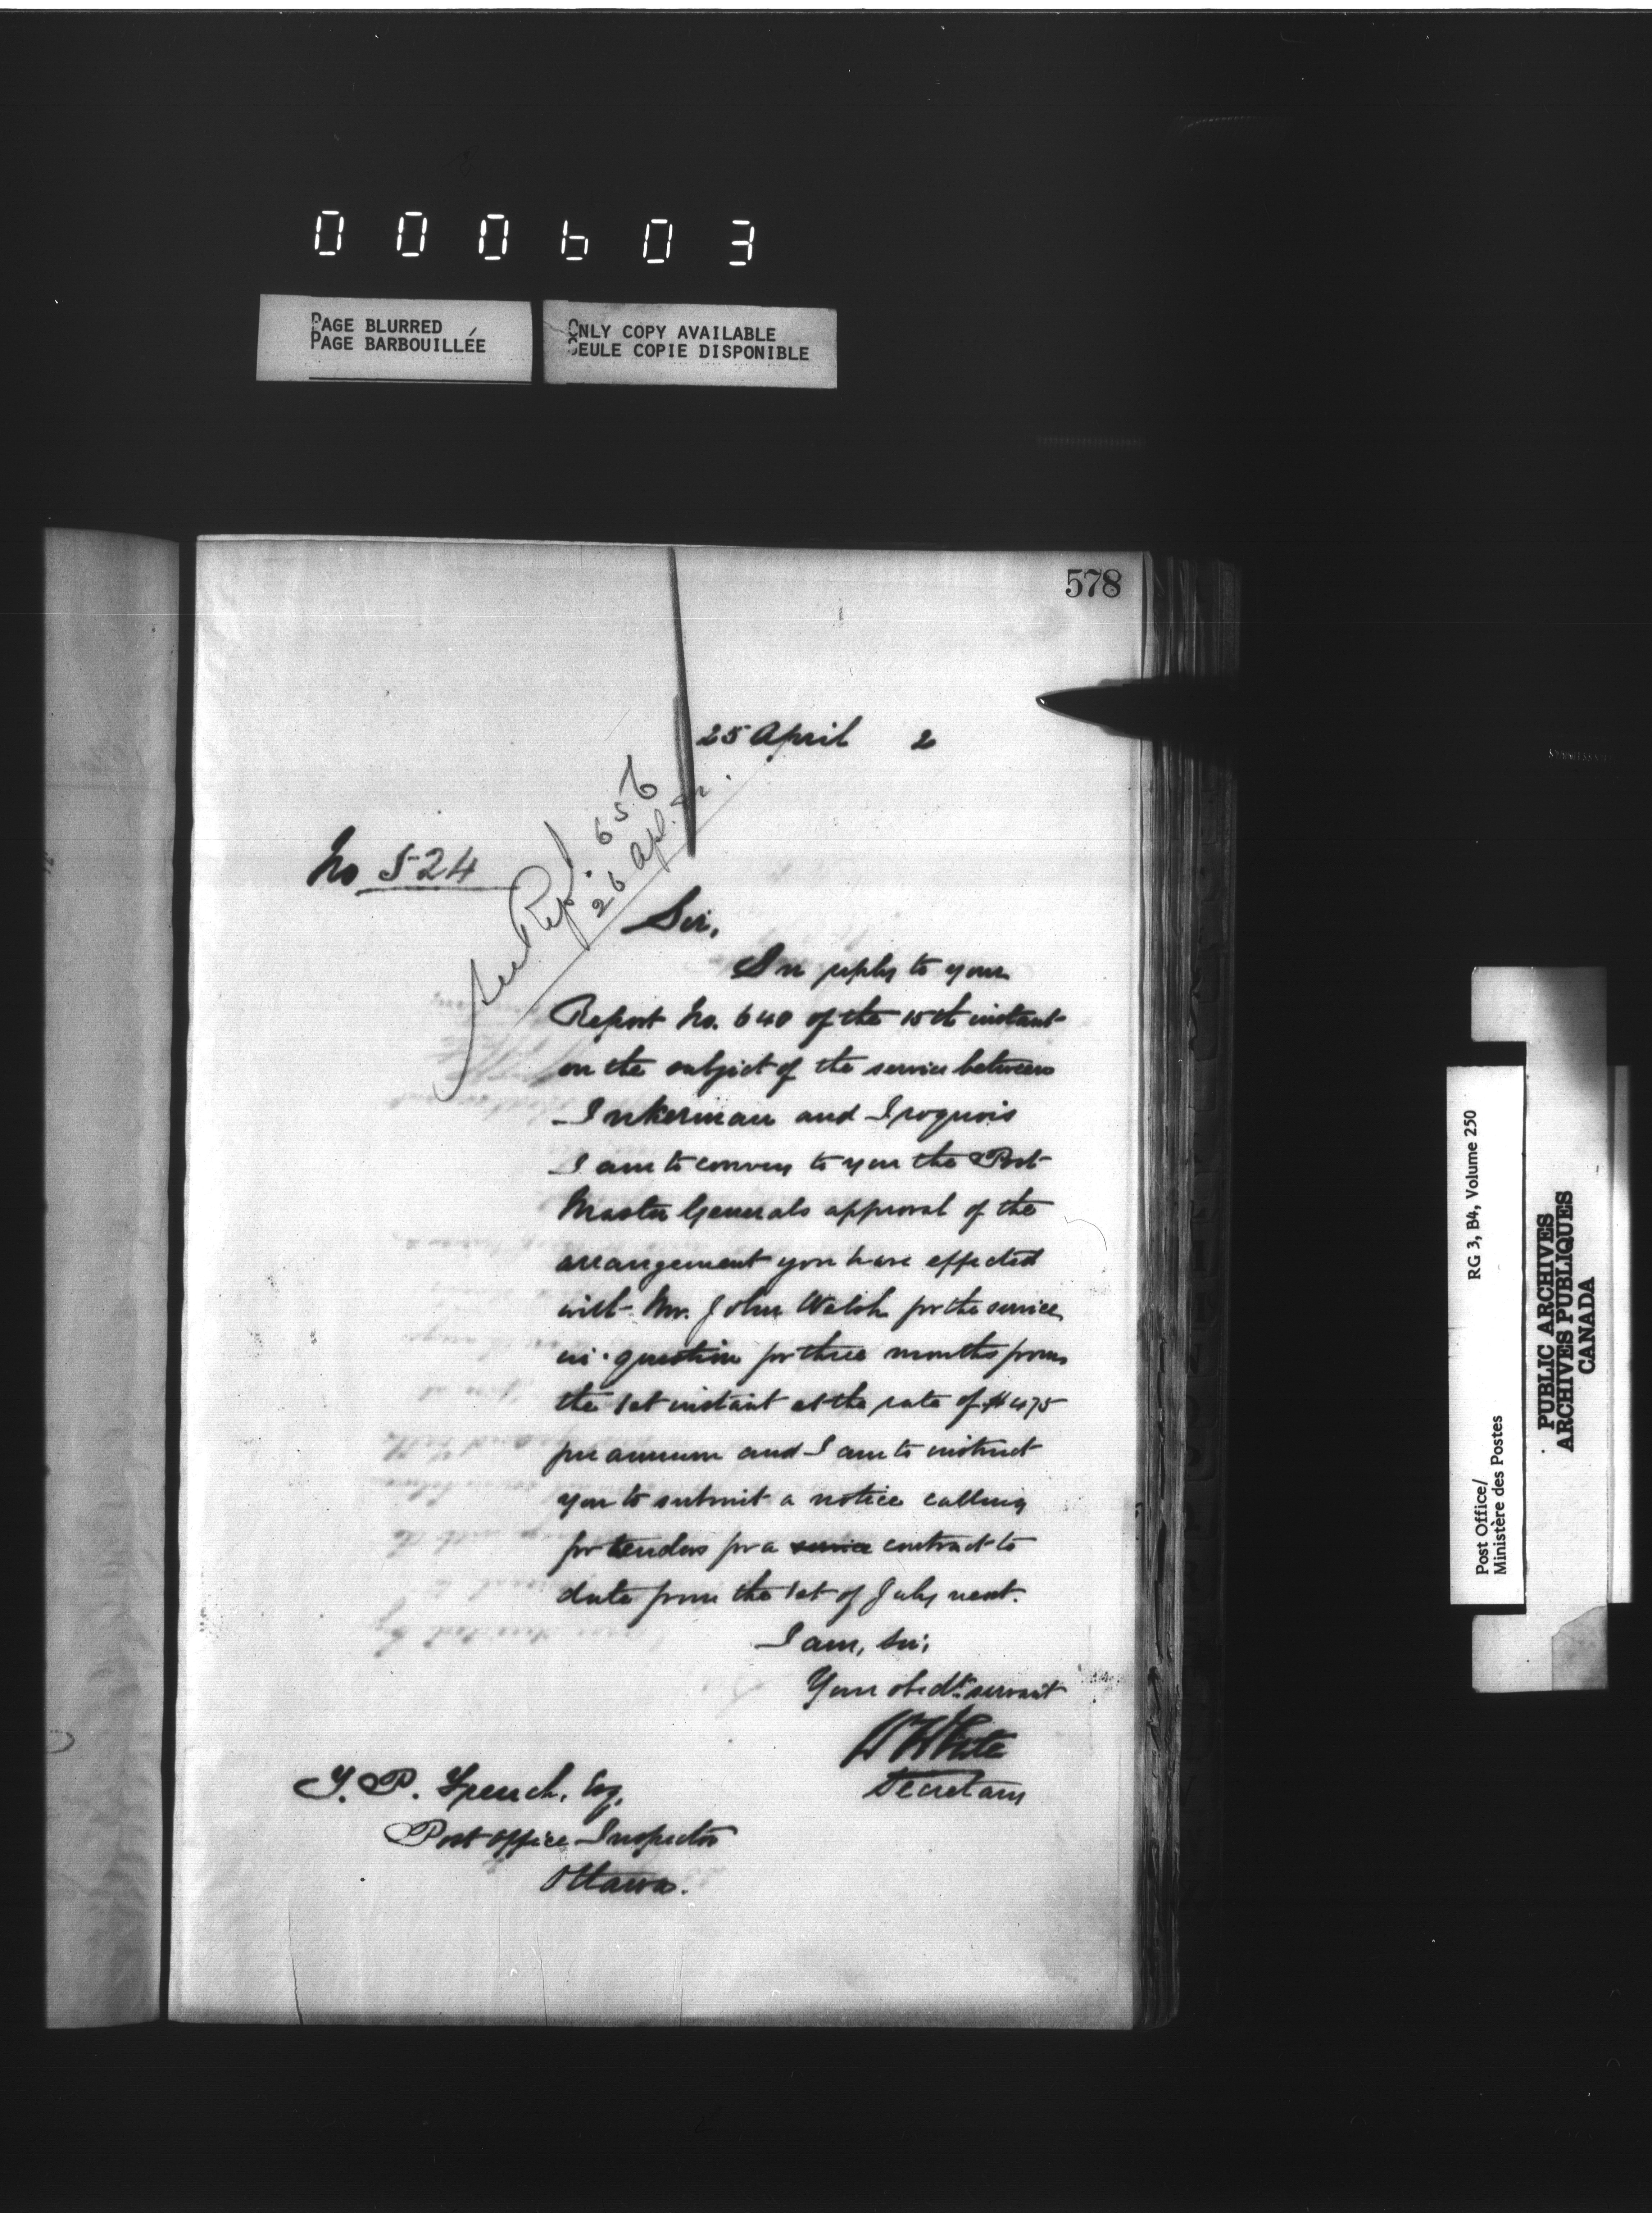 000603
PAGE BLURRED
PAGE BARBOUILLÉE
ONLY COPY AVAILABLE
SEULE COPIE DISPONIBLE
578
25 April 2
See Rept. 656
26 Apl. 82.
No 524
Sir,
In reply to your
Report No. 640 of the 15th instant
on the subject of the service between
Inkerman and Iroquois
I am to convey to you the Post
Master Generals approval of the
arrangement you have effected
with Mr. John Welsh for the service
in question for three months from
the 1st instant at the rate of $475
per annum and I am to instruct
you to submit a notice calling
for tenders for a service contract to
date from the 1st of July next.
I am, Sir,
Your obedt. servant
W White
Secretary
T. P. French, Esq.
Post Office Inspector
Ottawa.
Post Office/
Ministère des Postes
RG 3, B4, Volume 250
PUBLIC ARCHIVES
ARCHIVES PUBLIQUES
CANADA